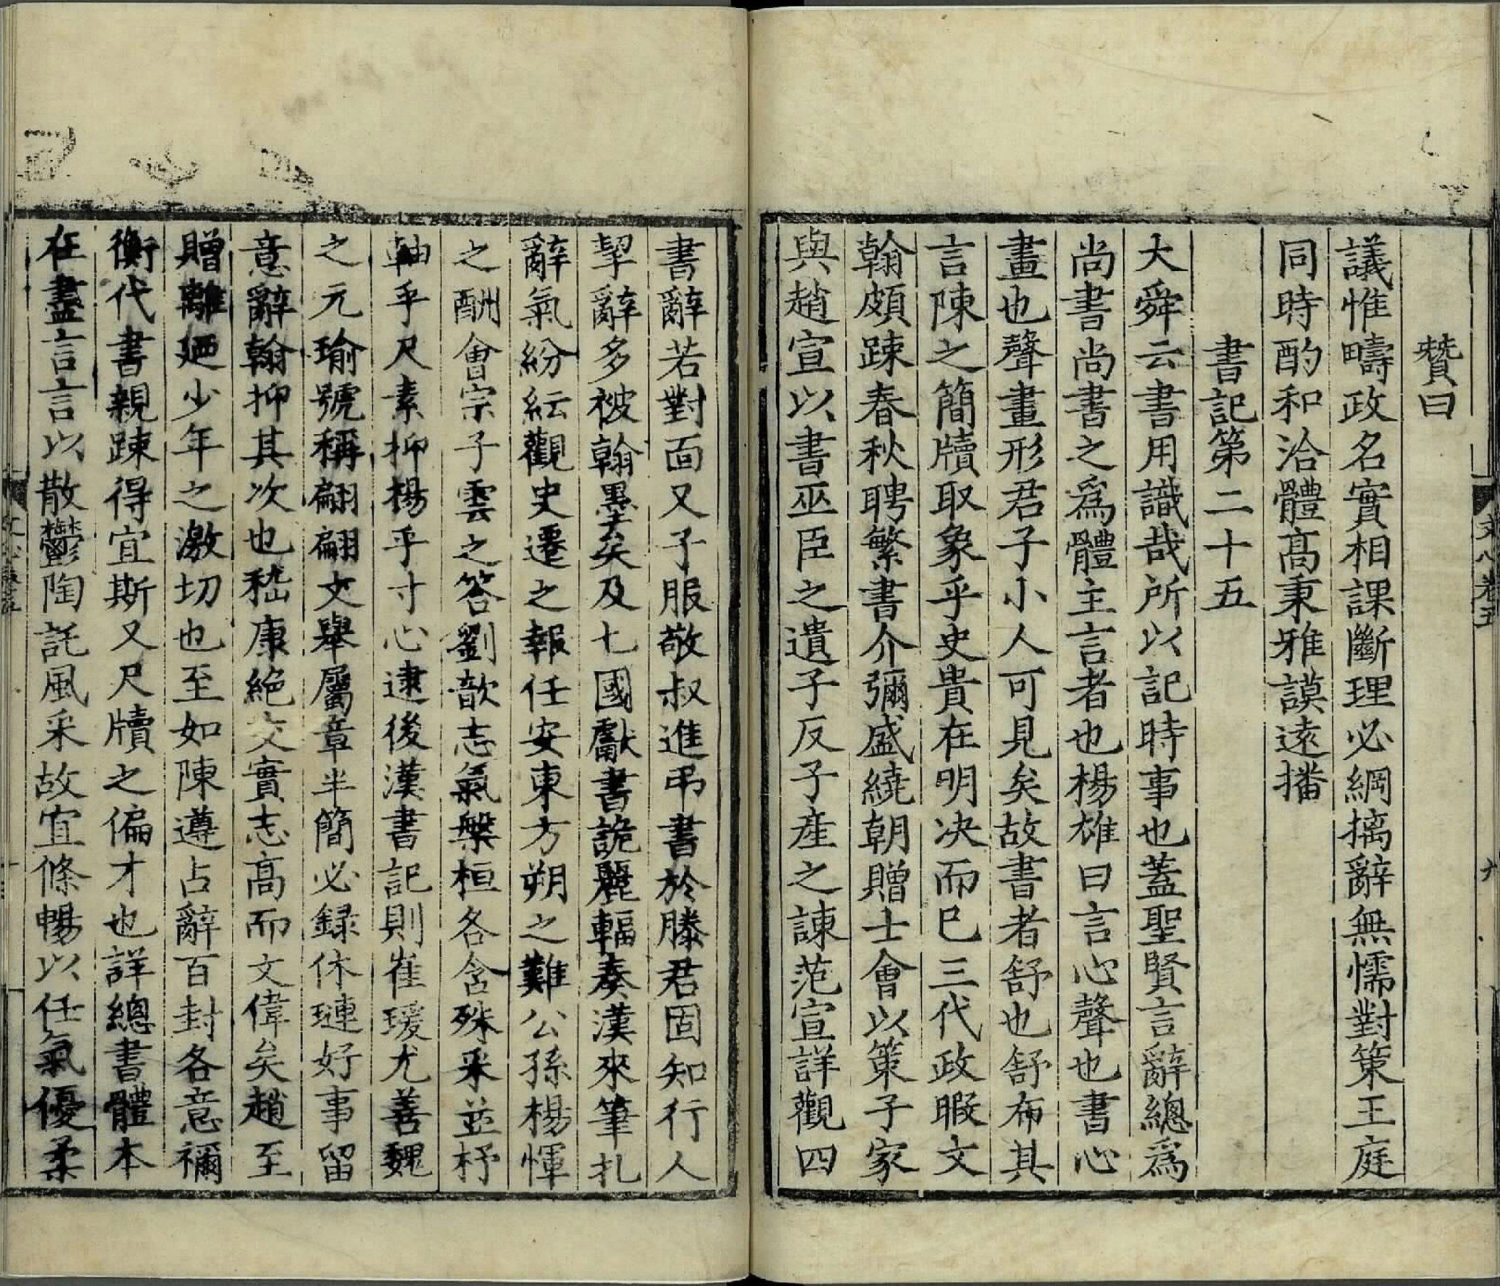 贊曰
議惟疇政名實相課斷理必綱摛辭無懦對策王庭
同時酌和洽體高秉雅謨遠播
書記第二十五
大舜云書用識哉所以記時事也蓋聖賢言辭總爲
尚書尚書之爲體主言者也楊雄曰言心聲也書心
畫也聲畫形君子小人可見矣故書者舒也舒布其
言陳之簡牘取象乎史貴在明决而巳三代政暇文
翰頗踈春秋聘繁書介彌盛繞朝贈士會以策子家
與趙宣以書巫臣之遺子反子產之諫范宣詳觀四
書辭若對面又子服敬叔進弔書於滕君固知行人
挈辭多被翰墨矣及七國獻書詭麗輻奏漢來筆札
辭氣紛紜觀史遷之報任安東方朔之難公孫楊惲
之酬會宗子雲之答劉歆志氣槃桓各含殊采並杼
軸乎尺素抑楊乎寸心逮後漢書記則崔瑗尤善魏
之元瑜號稱翩翩文舉屬章半簡必録休璉好事留
意辭翰抑其次也嵇康絶交實志高而文偉矣趙至
贈離廼少年之激切也至如陳遵占辭百封各意禰
衡代書親踈得宜斯又尺牘之偏才也詳總書體本
在盡言言以散鬱陶託風采故宜條暢以任氣優柔
文心卷五
九